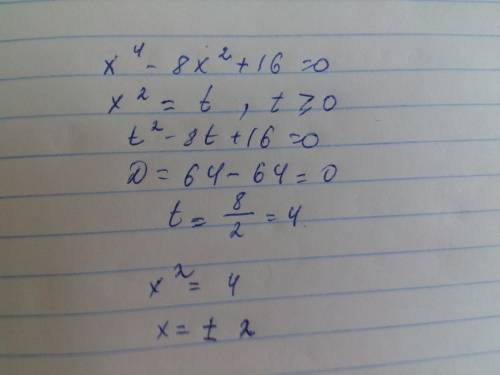 x⁴ - 8x² + 16 = 0
x² = t , t ⩾ 0
t² - 8t + 16 = 0
D = 64 - 64 = 0
t = 8/2 = 4
x² = 4
x = ± 2